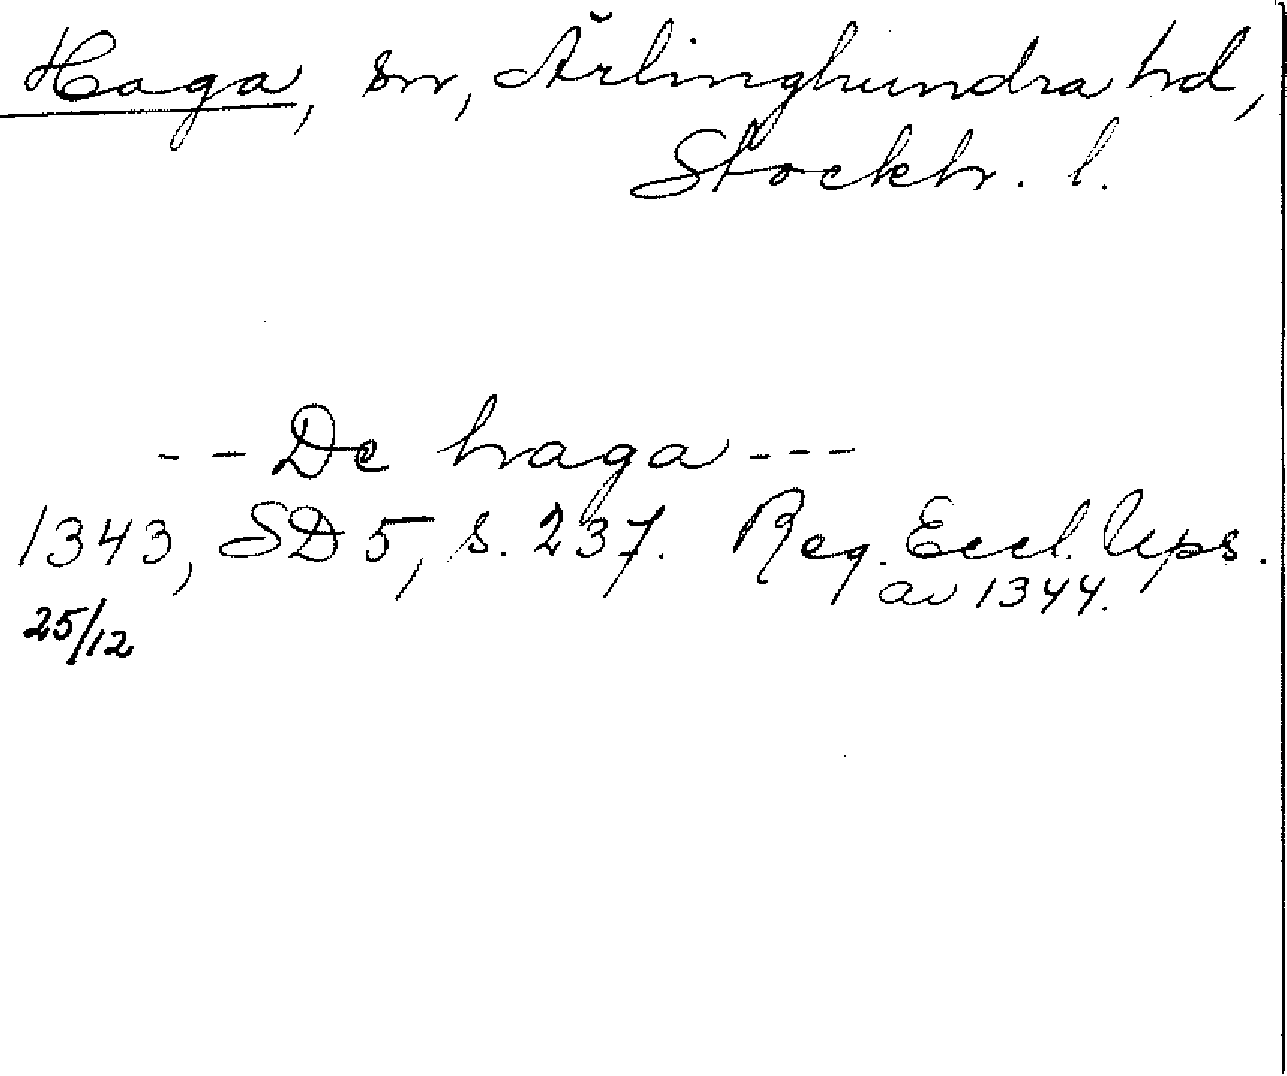 Haga, sn, Ärlinghundra hd,
Stockh. l.
-- De haga ---
1343, SD 5, s. 237. Reg. Eccl. Ups.
av 1344.
25/12